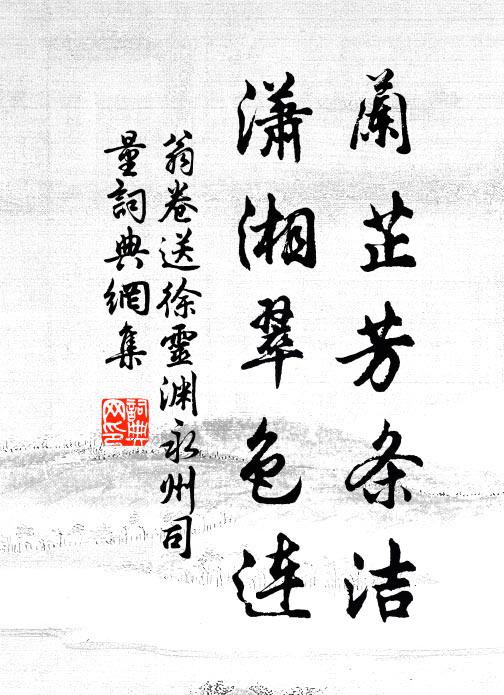 蘭芷芳条洁
瀟湘翠色连
翁卷送徐靈渊永州司
量詞典網集
詞典网印